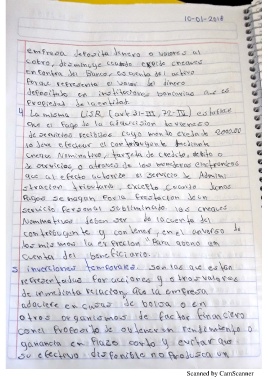 10-01-2018
empresa deposita dinero o valores al
cobro, disminuye cuando expide cheques
en contra del Banco es cuenta del activo
Porque representa el valor del dinero
depositado en instituciones bancarias que es
Propiedad de la entidad.
4 La misma LISR (art 31-III, 72-IV) establece
que el Pago de la adquisicion bienes o
de servicios recibidos cuyo monto exceda 2000.00
lo debe efectuar el contribuyente mediante
cheque Nominativo, tarjeta de credito, debito o
de servicios, o atraves de los monederos electronicos
que al efecto autorice el servicio de Admini
stracion tributaria, excepto cuando dichos
Pagos se hagan Por la Prestacion de un
servicio Personal subordinado los cheques
Nominativos deben ser de la cuenta del
contribuyente y contener, en el anverso de
los mismos la expresion "Para abono en
cuenta del beneficiario.
5 inversiones temporales son las que estan
representadas Por acciones y otros valores
de inmediata relacion, que la empresa
adquiere en casas de bolsa o en
otros organismos de factor financiero
con el Proposito de obtener un Rendimiento o
ganancia en Plazo corto y evitar que
su efectivo disponible no Produzca un
Scanned by CamScanner